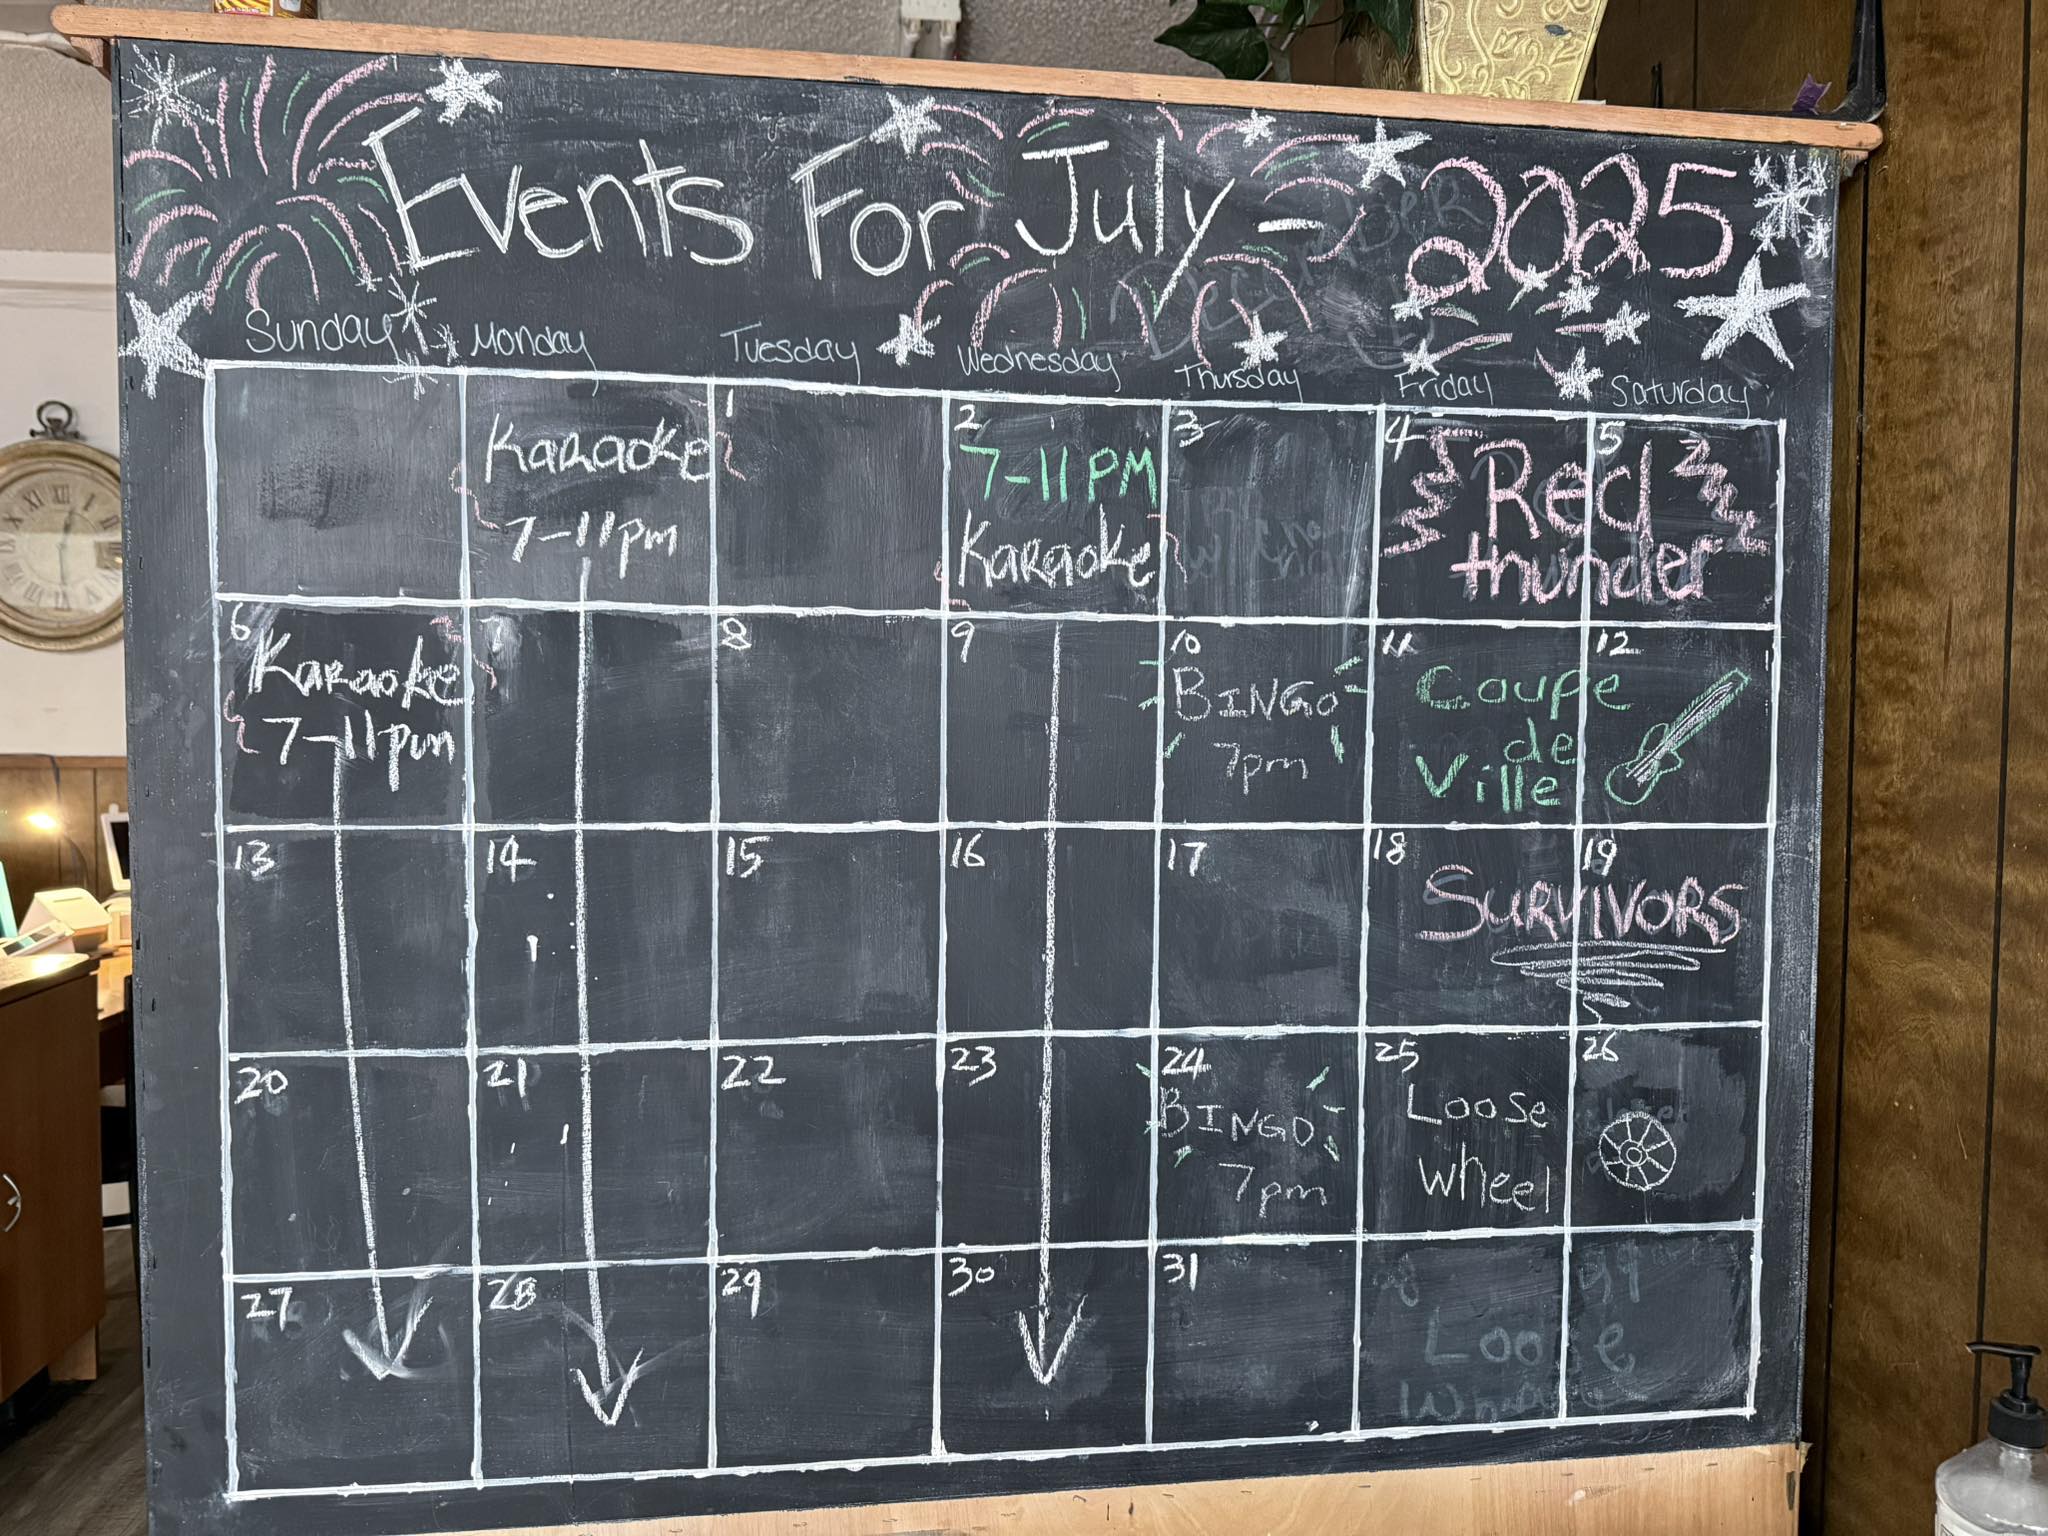 Events For July - 2025
Sunday Monday Tuesday Wednesday Thursday Friday Saturday
Karaoke
7-11pm
1
2
7-11PM
Karaoke
3
4
5
Red
thunder
6
Karaoke
7-11pm
7
8
9
10
BINGO
7pm
11
12
Coupe
de
Ville
13
14
15
16
17
18
19
SURVIVORS
20
21
22
23
24
BINGO
7pm
25
Loose
Wheel
26
27
28
29
30
31
Loose